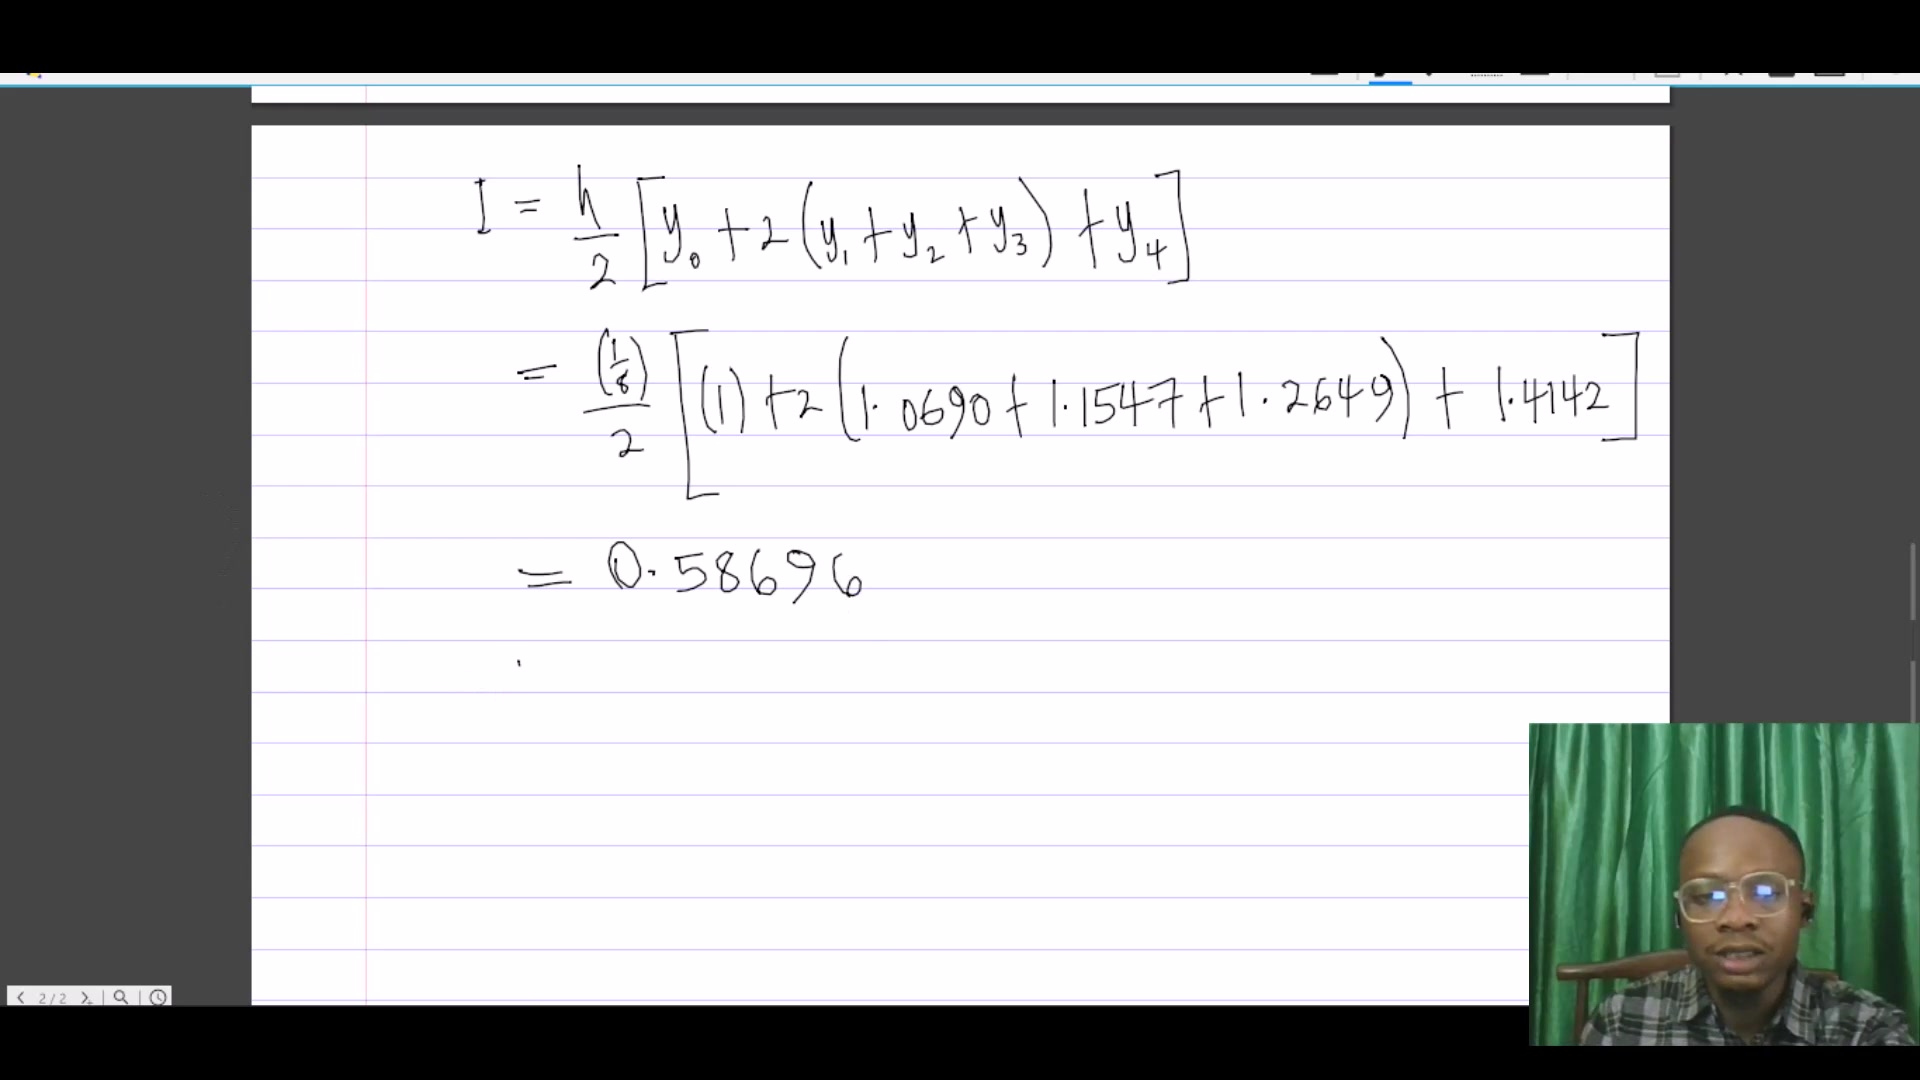 I = h/2 [y₀ + 2(y₁ + y₂ + y₃) + y₄]
= (1/8)/2 [(1) + 2(1.0690 + 1.1547 + 1.2649) + 1.4142]
= 0.58696
2/2